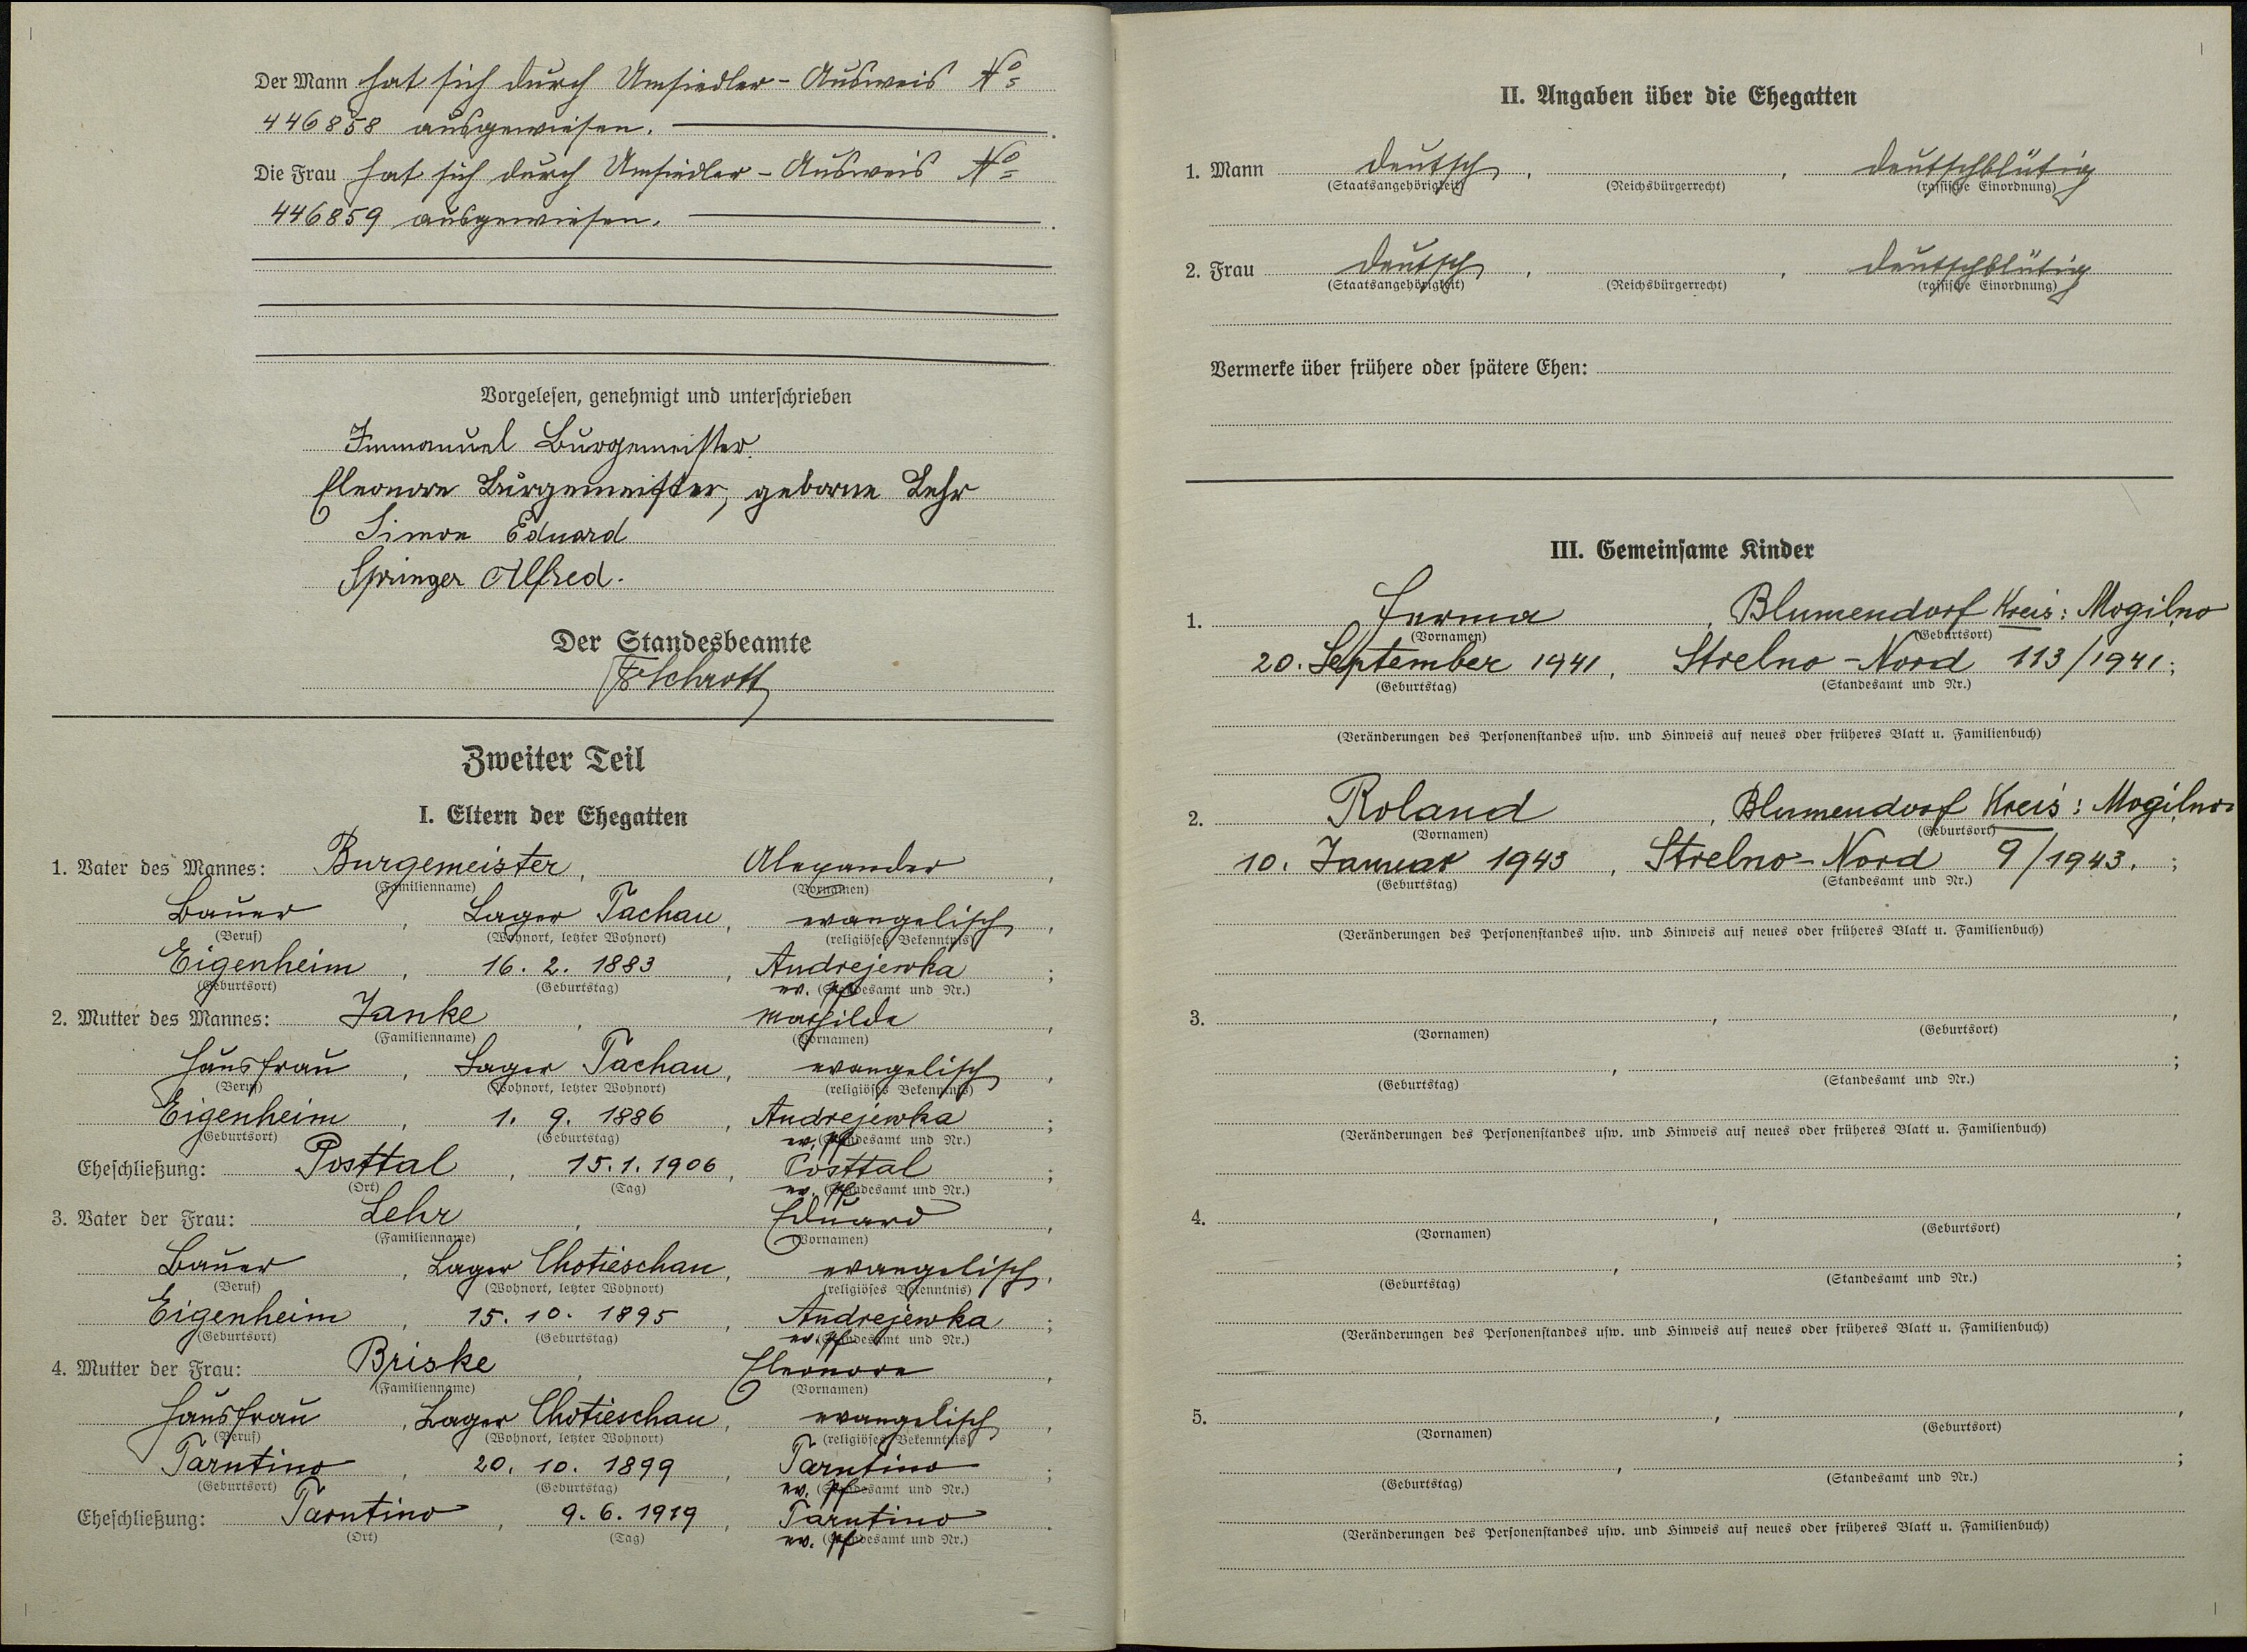 Der Mann hat sich durch Umsiedler-Ausweis No
446858 ausgewiesen.
Die Frau hat sich durch Umsiedler-Ausweis No
446859 ausgewiesen.
Vorgelesen, genehmigt und unterschrieben
Immanuel Burgemeister.
Eleonore Burgemeister, geborne Lehr
Simon Eduard
Springer Alfred.
Der Standesbeamte
Schrott
Zweiter Teil
I. Eltern der Ehegatten
1. Vater des Mannes: Burgemeister, Alexander,
(Familienname) (Vornamen)
Bauer, Lager Tachau, evangelisch,
(Beruf) (Wohnort, letzter Wohnort) (religiöses Bekenntnis)
Eigenheim, 16. 2. 1883, Andrejewka;
(Geburtsort) (Geburtstag) ev. Pf. (Standesamt und Nr.)
2. Mutter des Mannes: Janke, Mathilde,
(Familienname) (Vornamen)
Hausfrau, Lager Tachau, evangelisch,
(Beruf) (Wohnort, letzter Wohnort) (religiöses Bekenntnis)
Eigenheim, 1. 9. 1886, Andrejewka;
(Geburtsort) (Geburtstag) ev. Pf. (Standesamt und Nr.)
Eheschließung: Posttal, 15. 1. 1906, Posttal;
(Ort) (Tag) ev. Pf. (Standesamt und Nr.)
3. Vater der Frau: Lehr, Eduard,
(Familienname) (Vornamen)
Bauer, Lager Chotieschau, evangelisch,
(Beruf) (Wohnort, letzter Wohnort) (religiöses Bekenntnis)
Eigenheim, 15. 10. 1895, Andrejewka;
(Geburtsort) (Geburtstag) ev. Pf. (Standesamt und Nr.)
4. Mutter der Frau: Briske, Eleonore,
(Familienname) (Vornamen)
Hausfrau, Lager Chotieschau, evangelisch,
(Beruf) (Wohnort, letzter Wohnort) (religiöses Bekenntnis)
Tarutino, 20. 10. 1899, Tarutino;
(Geburtsort) (Geburtstag) ev. Pf. (Standesamt und Nr.)
Eheschließung: Tarutino, 9. 6. 1919, Tarutino.
(Ort) (Tag) ev. Pf. (Standesamt und Nr.)
II. Angaben über die Ehegatten
1. Mann deutsch, , deutschblütig
(Staatsangehörigkeit) (Reichsbürgerrecht) (rassische Einordnung)
2. Frau deutsch, , deutschblütig
(Staatsangehörigkeit) (Reichsbürgerrecht) (rassische Einordnung)
Vermerke über frühere oder spätere Ehen:
III. Gemeinsame Kinder
1. Irma, Blumendorf Kreis: Mogilno
(Vornamen) (Geburtsort)
20. September 1941, Strelno-Nord 113/1941;
(Geburtstag) (Standesamt und Nr.)
(Veränderungen des Personenstandes usw. und Hinweis auf neues oder früheres Blatt u. Familienbuch)
2. Roland, Blumendorf Kreis: Mogilno
(Vornamen) (Geburtsort)
10. Januar 1943, Strelno-Nord 9/1943.;
(Geburtstag) (Standesamt und Nr.)
(Veränderungen des Personenstandes usw. und Hinweis auf neues oder früheres Blatt u. Familienbuch)
3. , ,
(Vornamen) (Geburtsort)
, ;
(Geburtstag) (Standesamt und Nr.)
(Veränderungen des Personenstandes usw. und Hinweis auf neues oder früheres Blatt u. Familienbuch)
4. , ,
(Vornamen) (Geburtsort)
, ;
(Geburtstag) (Standesamt und Nr.)
(Veränderungen des Personenstandes usw. und Hinweis auf neues oder früheres Blatt u. Familienbuch)
5. , ,
(Vornamen) (Geburtsort)
, ;
(Geburtstag) (Standesamt und Nr.)
(Veränderungen des Personenstandes usw. und Hinweis auf neues oder früheres Blatt u. Familienbuch)